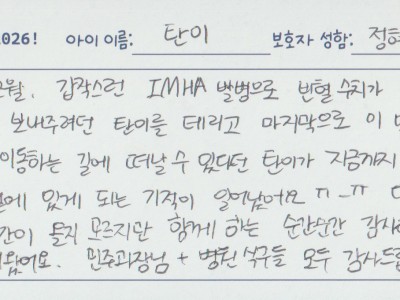 2026! 아이 이름: 탄이 보호자 성함: 정혜
갑작스런 IMHA 발병으로 빈혈 수치가
보내주려던 탄이를 데리고 마지막으로 이 병
이동하는 길에 떠날 수 있다던 탄이가 지금까지
에 있게 되는 기적이 일어났어요 ㅠ_ㅠ
간이 될지 모르지만 함께 하는 순간순간 감사
왔어요. 민주과장님 + 병원 식구들 모두 감사드립